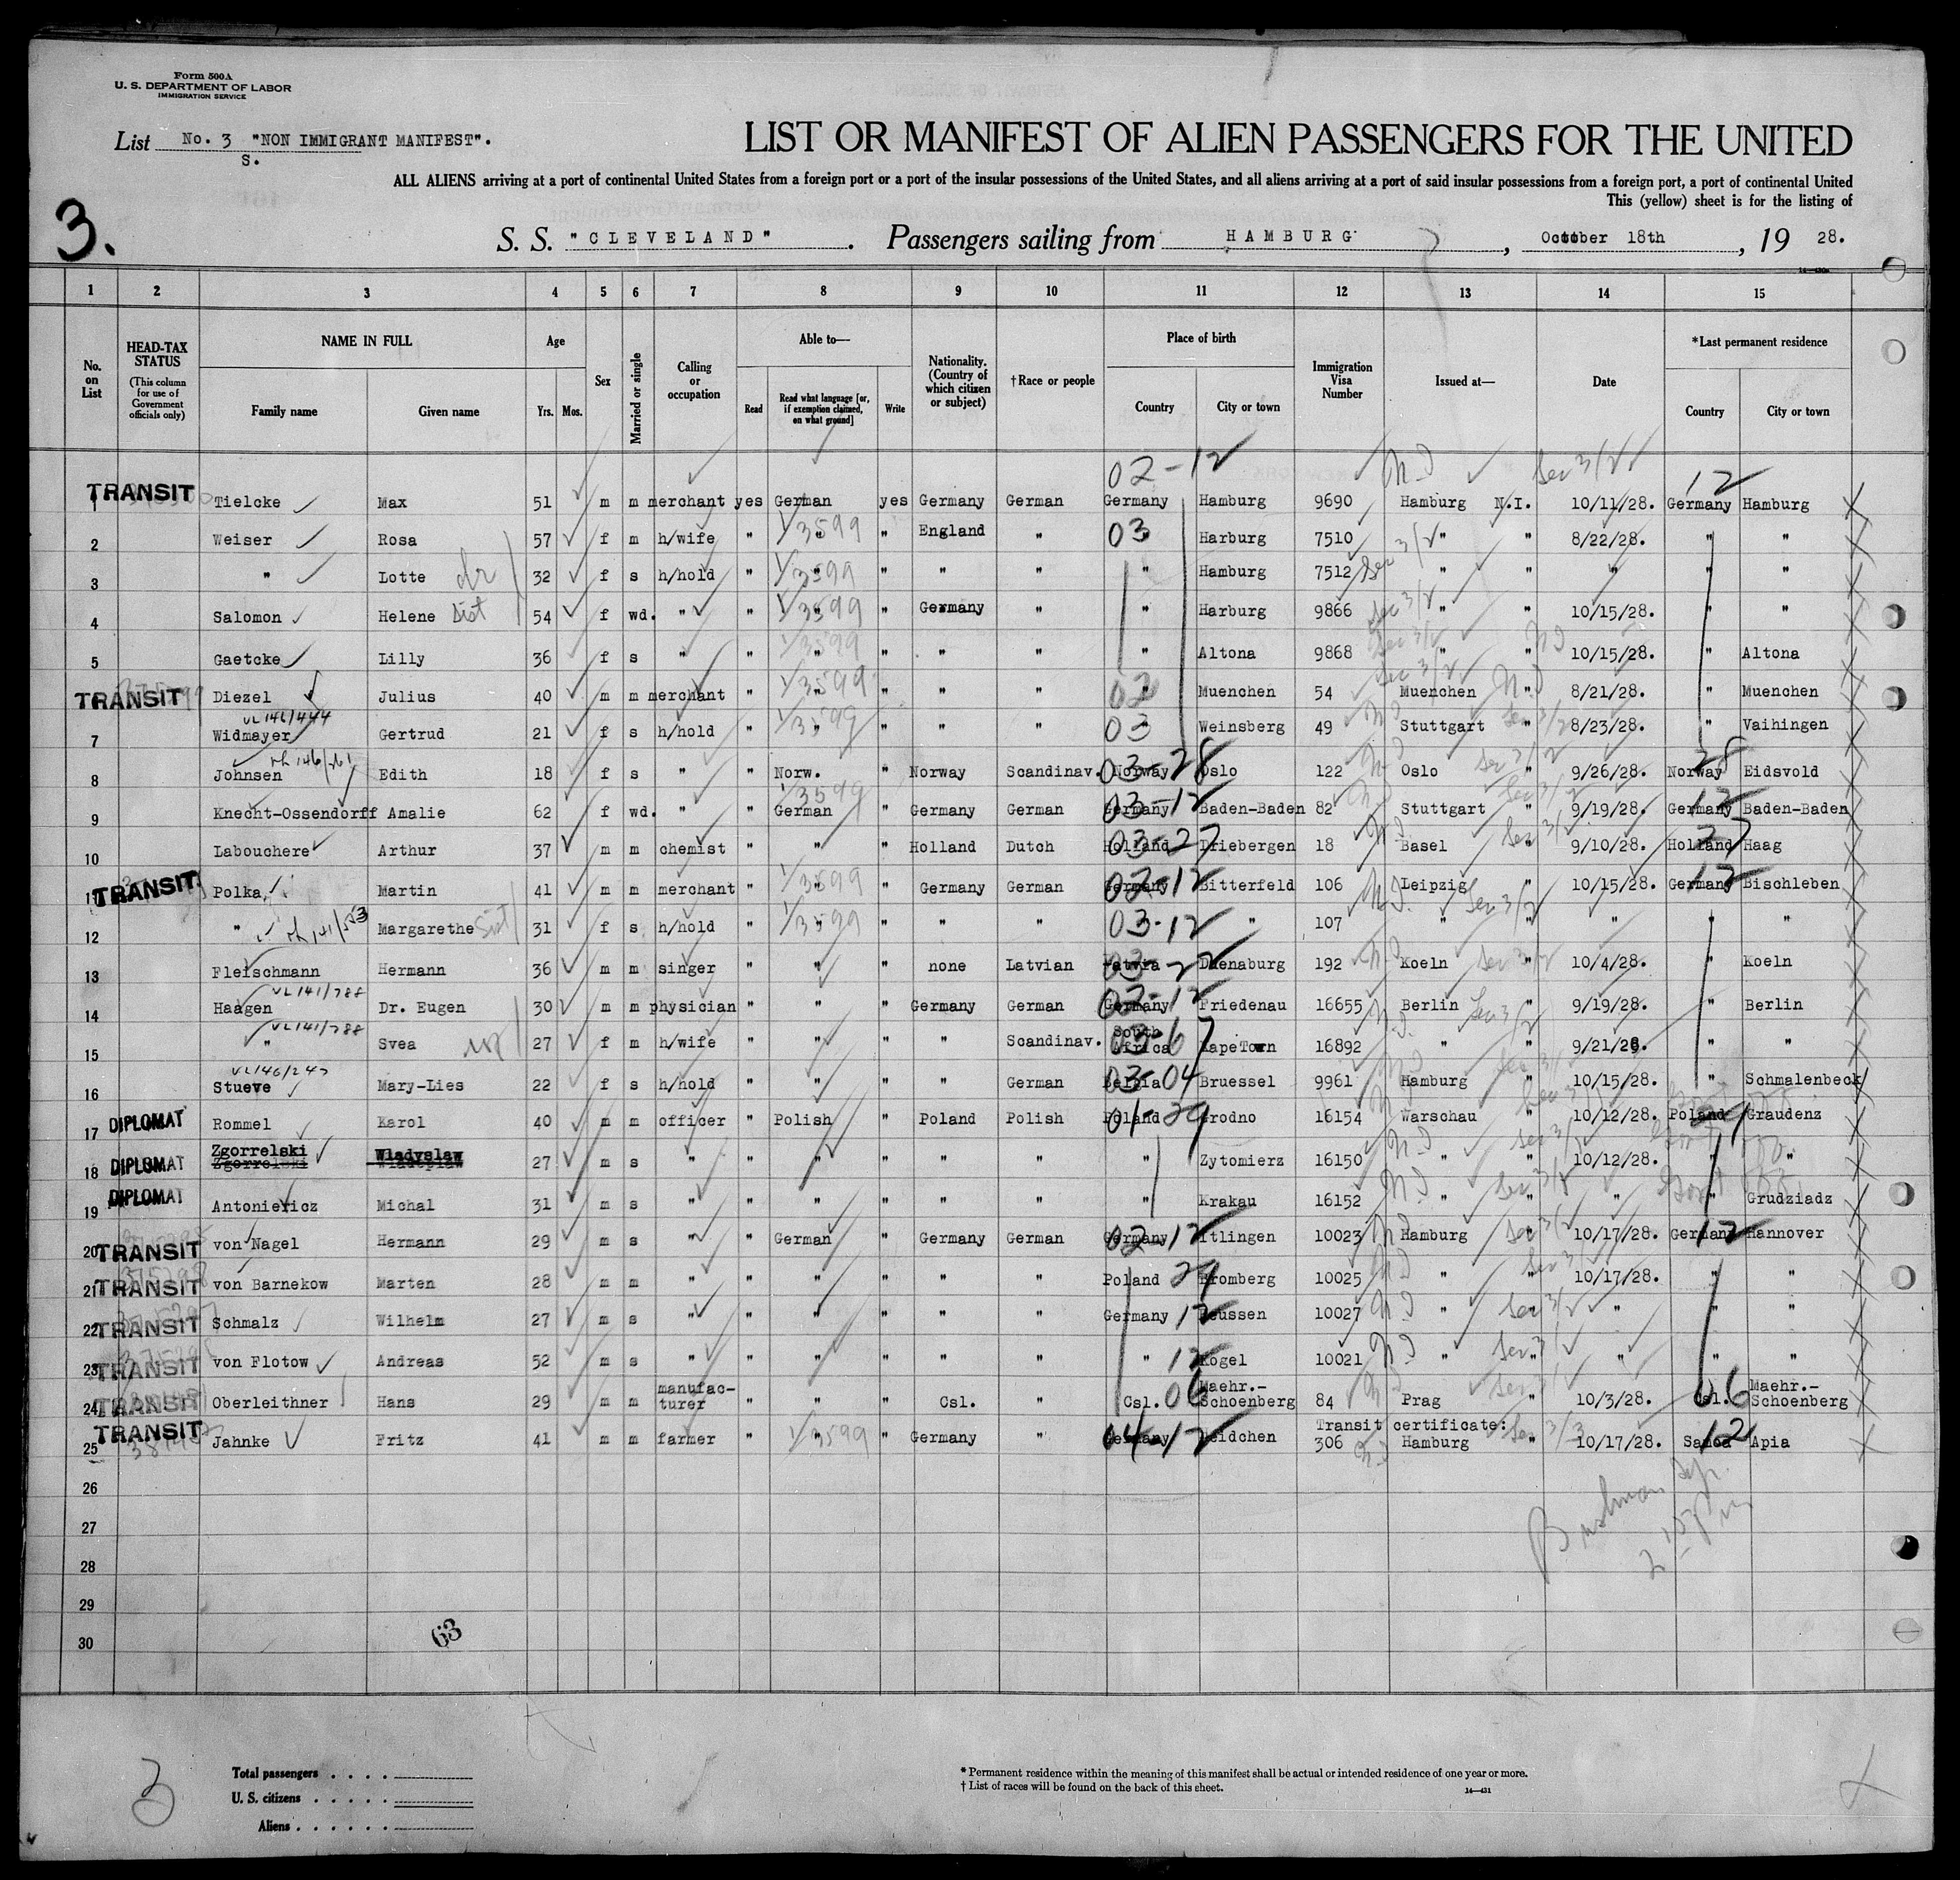 Form 500A
U. S. DEPARTMENT OF LABOR
IMMIGRATION SERVICE
List No. 3 "NON IMMIGRANT MANIFEST".
S.
LIST OR MANIFEST OF ALIEN PASSENGERS FOR THE UNITED
ALL ALIENS arriving at a port of continental United States from a foreign port or a port of the insular possessions of the United States, and all aliens arriving at a port of said insular possessions from a foreign port, a port of continental United
This (yellow) sheet is for the listing of
3.
S. S. "CLEVELAND". Passengers sailing from HAMBURG, October 18th, 19 28.
1 2 3 4 5 6 7 8 9 10 11 12 13 14 15
No. on List
HEAD-TAX STATUS (This column for use of Government officials only)
NAME IN FULL Family name Given name
Age Yrs. Mos.
Sex
Married or single
Calling or occupation
Able to— Read Read what language [or, if exemption claimed, on what ground] Write
Nationality. (Country of which citizen or subject)
†Race or people
Place of birth Country City or town
Immigration Visa Number
Issued at—
Date
*Last permanent residence Country City or town
02-12 Sec 3/2 12
1 TRANSIT Tielcke Max 51 m m merchant yes German yes Germany German Germany Hamburg 9690 Hamburg N.I. 10/11/28. Germany Hamburg
2 Weiser Rosa 57 f m h/wife " 1/3599 " " England " 03 " Harburg 7510 " " 8/22/28. " "
3 " Lotte 32 f s h/hold " 1/3599 " " " " " Hamburg 7512 " " " " "
4 Salomon Helene sist 54 f wd. " " 1/3599 " " Germany " " Harburg 9866 " " 10/15/28. " "
5 Gaetcke Lilly 36 f s " " 1/3599 " " " " " Altona 9868 " " 10/15/28. " Altona
6 TRANSIT Diezel Julius 40 m m merchant " 1/3599 " " " " " Muenchen 54 Muenchen 8/21/28. " Muenchen
7 Widmayer Gertrud 21 f s h/hold " 1/3599 " " " " 03 " Weinsberg 49 Stuttgart " 8/23/28. " Vaihingen
8 Johnsen Edith 18 f s " " Norw. " Norway Scandinav. 03-28 Norway Oslo 122 Oslo " 9/26/28. Norway 28 Eidsvold
9 Knecht-Ossendorff Amalie 62 f wd. " " 1/3599 German " Germany German 03-12 Germany Baden-Baden 82 Stuttgart " 9/19/28. Germany 12 Baden-Baden
10 Labouchere Arthur 37 m m chemist " " " Holland Dutch 03-27 Holland Driebergen 18 Basel " 9/10/28. Holland 27 Haag
11 TRANSIT Polka Martin 41 m m merchant " 1/3599 " " Germany German 02-12 Germany Bitterfeld 106 Leipzig " 10/15/28. Germany 12 Bischleben
12 " Margarethe sist 31 f s h/hold " 1/3599 " " " " 03-12 " 107 " " " " "
13 Fleischmann Hermann 36 m m singer " " " none Latvian Latvia Duenaburg 192 Koeln " 10/4/28. " Koeln
VL 141/788
14 Haagen Dr. Eugen 30 m m physician " " " Germany German Germany Friedenau 16655 Berlin " 9/19/28. " Berlin
VL 141/788
15 " Svea 27 f m h/wife " " " " Scandinav. 03-67 South Africa KapeTown 16892 " " 9/21/28. " "
16 Stueve Mary-Lies 22 f s h/hold " " " " German 03-04 Belgia Bruessel 9961 Hamburg " 10/15/28. " Schmalenbeck
17 DIPLOMAT Rommel Karol 40 m m officer " Polish " Poland Polish 01-29 Poland Grodno 16154 Warschau " 10/12/28. Poland Graudenz
18 DIPLOMAT Zgorrelski Wladyslaw 27 m s " " " " " " " Zytomierz 16150 " " 10/12/28. " "
19 DIPLOMAT Antoniewicz Michal 31 m s " " " " " " " Krakau 16152 " " " " Grudziadz
20 TRANSIT von Nagel Hermann 29 m s " " German " Germany German 02-12 Germany Itlingen 10023 Hamburg " 10/17/28. Germany 12 Hannover
21 TRANSIT von Barnekow Marten 28 m m " " " " " " Poland 29 Bromberg 10025 " " 10/17/28. " "
22 TRANSIT Schmalz Wilhelm 27 m s " " " " " " Germany 12 Reussen 10027 " " " " "
23 TRANSIT von Flotow Andreas 52 m s " " " " " " " 12 Kogel 10021 " " " " "
24 TRANSIT Oberleithner Hans 29 m m manufac-turer " " " Csl. " Csl. 06 Maehr.-Schoenberg 84 Prag " 10/3/28. Csl. 06 Maehr.-Schoenberg
Transit certificate:
25 TRANSIT Jahnke Fritz 41 m m farmer " 1/3599 " " Germany " 04-12 Germany Heidchen 306 Hamburg " 10/17/28. Samoa 12 Apia
26
27
28
29
30
63
3
Total passengers
U. S. citizens
Aliens
* Permanent residence within the meaning of this manifest shall be actual or intended residence of one year or more.
† List of races will be found on the back of this sheet.
14—431